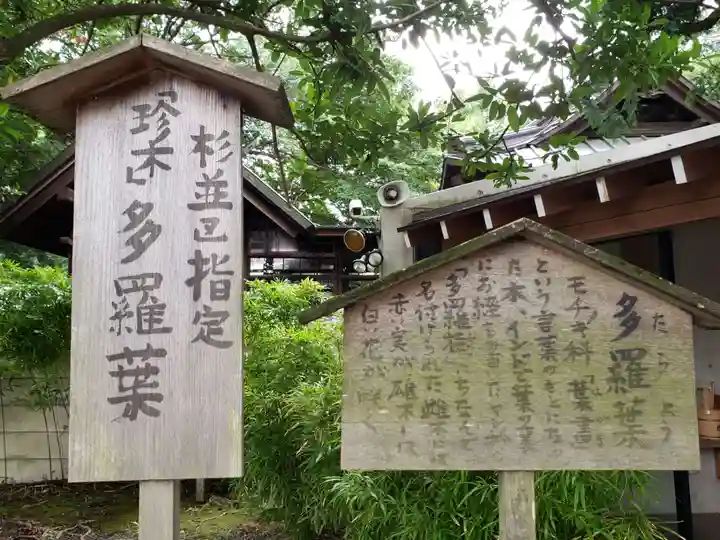 杉並区指定
「珍木」多羅葉
多羅葉
たらよう
モチノキ科「葉書」
という言葉のもとになっ
た木、インドで葉の裏
にお経を書いたヤシ科
「多羅樹」にちなんで
名付けられた雌木には
赤い実が雄木には
白い花が咲く